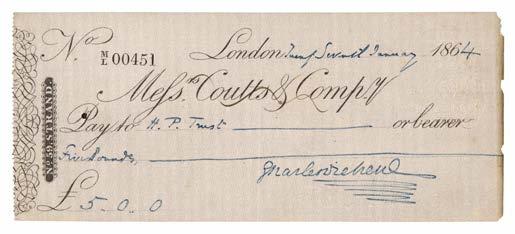 No. M/L 00451 London Twenty Seventh January 1864
Messrs. Coutts & Compy
Pay to H. P. Trust or bearer
Five Pounds
Charles Dickens
£ 5.0.0
STRAND